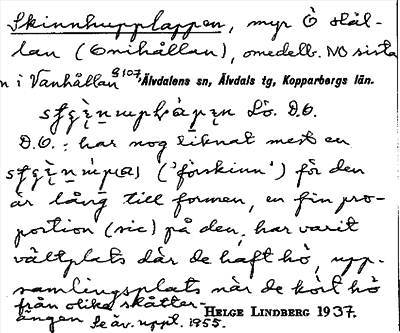 Skinnhupplappen, myr Ö Stäl-
lan (Önihållan), omedelb. NO sista
n i Vanhållan §107, Älvdalens sn, Älvdals tg, Kopparbergs län.
Lö. D.O.
D.O.: har nog liknat mest en
('förskinn') för den
är lång till formen, en fin pro-
portion (sic) på den, har varit
vältplats där de haft hö, upp-
samlingsplats när de kört hö
från olika slåtter-
ängen Se äv. uppt. 1955. HELGE LINDBERG 1937.